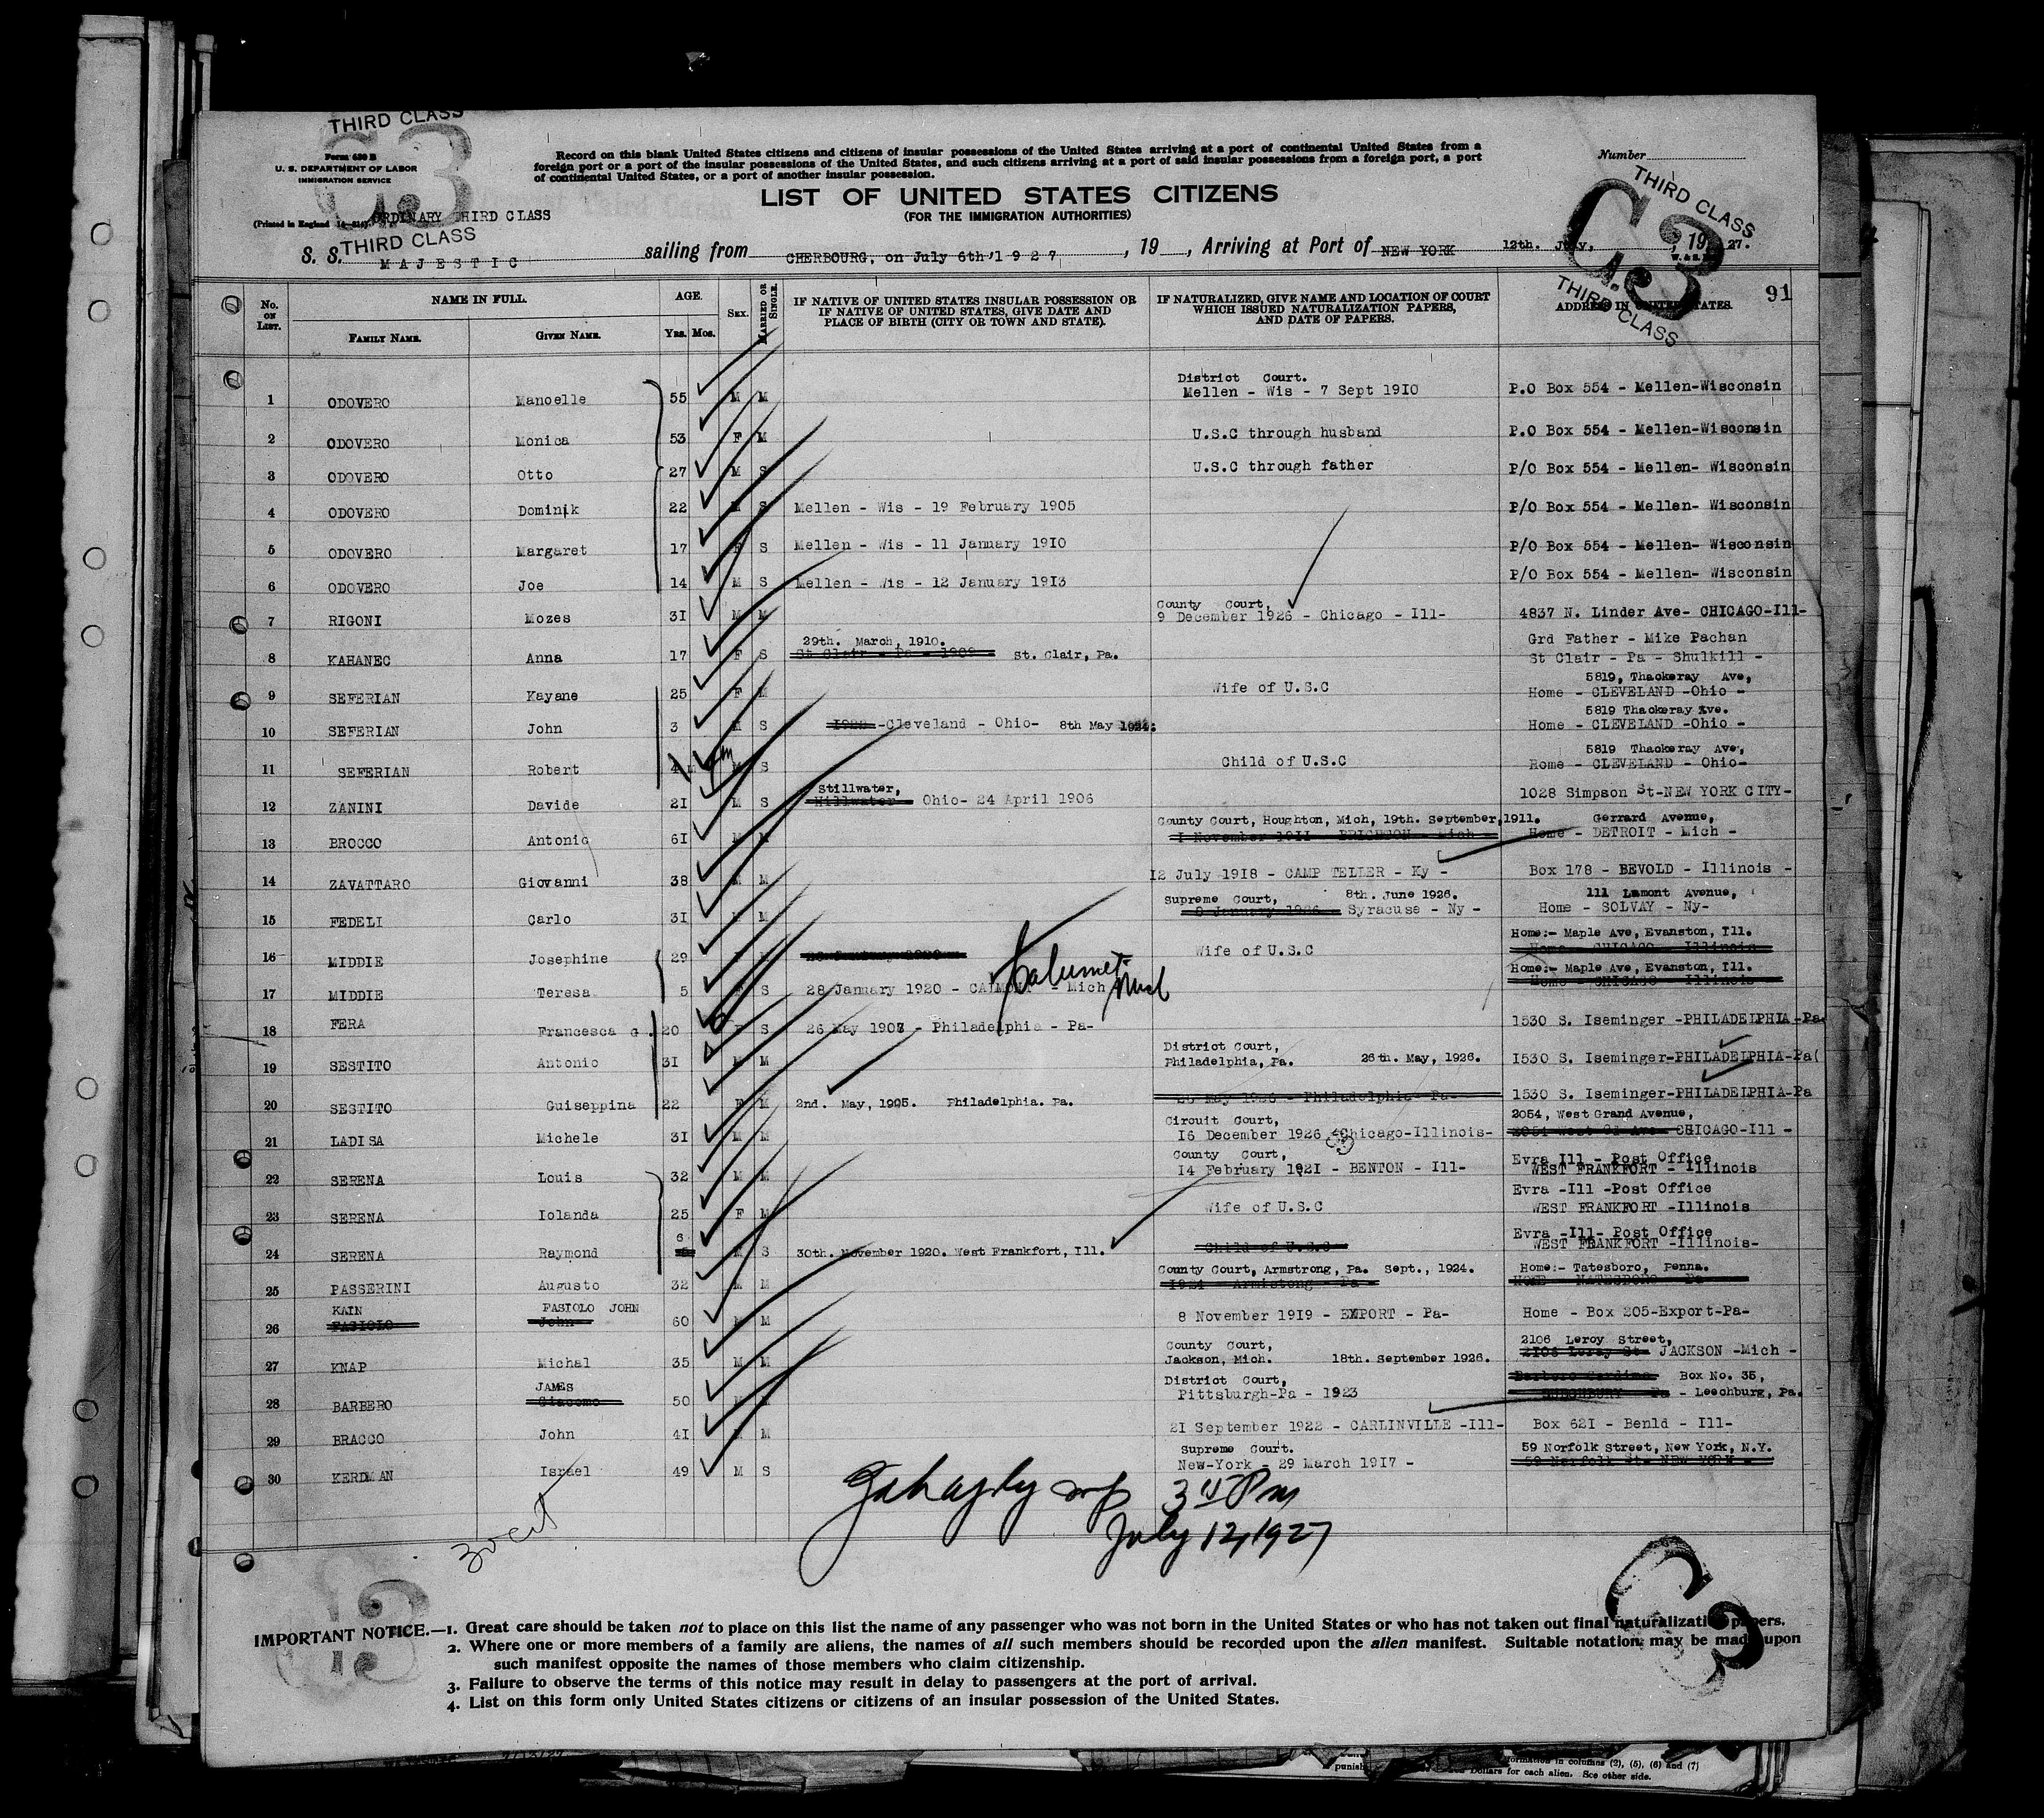 THIRD CLASS
C3
Form 630 B
U. S. DEPARTMENT OF LABOR
IMMIGRATION SERVICE
(Printed in England
ORDINARY THIRD CLASS
THIRD CLASS
Record on this blank United States citizens and citizens of insular possessions of the United States arriving at a port of continental United States from a
foreign port or a port of the insular possessions of the United States, and such citizens arriving at a port of said insular possessions from a foreign port, a port
of continental United States, or a port of another insular possession.
LIST OF UNITED STATES CITIZENS
(FOR THE IMMIGRATION AUTHORITIES)
Number
THIRD CLASS
C3
THIRD CLASS
S. S. MAJESTIC sailing from CHERBOURG, on July 6th,1927, 19 , Arriving at Port of NEW YORK 12th. July, , 1927.
91
No. ON LIST. NAME IN FULL. FAMILY NAME. GIVEN NAME. AGE. YRS. MOS. SEX. MARRIED OR SINGLE. IF NATIVE OF UNITED STATES INSULAR POSSESSION OR IF NATIVE OF UNITED STATES, GIVE DATE AND PLACE OF BIRTH (CITY OR TOWN AND STATE). IF NATURALIZED, GIVE NAME AND LOCATION OF COURT WHICH ISSUED NATURALIZATION PAPERS, AND DATE OF PAPERS. ADDRESS IN UNITED STATES.
District Court.
1 ODOVERO Manoelle 55 M M Mellen - Wis - 7 Sept 1910 P.O Box 554 - Mellen-Wisconsin
2 ODOVERO Monica 53 F M U.S.C through husband P.O Box 554 - Mellen-Wisconsin
3 ODOVERO Otto 27 M S U.S.C through father P/O Box 554 - Mellen- Wisconsin
4 ODOVERO Dominik 22 M S Mellen - Wis - 19 February 1905 P/O Box 554 - Mellen- Wisconsin
5 ODOVERO Margaret 17 F S Mellen - Wis - 11 January 1910 P/O Box 554 - Mellen- Wisconsin
6 ODOVERO Joe 14 M S Mellen - Wis - 12 January 1913 P/O Box 554 - Mellen- Wisconsin
County Court,
7 RIGONI Mozes 31 M M 9 December 1926 - Chicago - Ill- 4837 N. Linder Ave- CHICAGO-Ill-
29th. March, 1910. Grd Father - Mike Pachan
8 KAHANEC Anna 17 F S St Clair - Pa - 1909 St. Clair, Pa. St Clair - Pa - Shulkill -
5819, Thackeray Ave,
9 SEFERIAN Kayane 25 F M Wife of U.S.C Home - CLEVELAND -Ohio -
5819 Thackeray Ave.
10 SEFERIAN John 3 M S -Cleveland - Ohio- 8th May 1924: Home - CLEVELAND -Ohio -
5819 Thackeray Ave,
11 SEFERIAN Robert M S Child of U.S.C Home - CLEVELAND - Ohio-
Stillwater,
12 ZANINI Davide 21 M S Hillwater Ohio- 24 April 1906 1028 Simpson St-NEW YORK CITY-
County Court, Houghton, Mich, 19th. September,1911. Gerrard Avenue,
13 BROCCO Antonio 61 M M 1 November 1911 - BRIGHTON - Mich - Home - DETROIT - Mich -
14 ZAVATTARO Giovanni 38 M M 12 July 1918 - CAMP TELLER - Ky - Box 178 - BEVOLD - Illinois -
Supreme Court, 8th. June 1926. 111 Lamont Avenue,
15 FEDELI Carlo 31 M M 8 January 1926 Syracuse - Ny - Home - SOLVAY - Ny-
Home:- Maple Ave, Evanston, Ill.
16 MIDDIE Josephine 29 Wife of U.S.C Home - CHICAGO - Illinois
Calumet- Mich Home:- Maple Ave, Evanston, Ill.
17 MIDDIE Teresa 5 F S 28 January 1920 - - Mich Home - CHICAGO - Illinois
18 FERA Francesca G. 20 F S 26 May 1907 - Philadelphia - Pa- 1530 S. Iseminger -PHILADELPHIA-Pa-
District Court,
19 SESTITO Antonio 31 M M Philadelphia, Pa. 26th. May, 1926. 1530 S. Iseminger-PHILADELPHIA-Pa(
20 SESTITO Guiseppina 22 F M 2nd. May, 1905. Philadelphia. Pa. 26 May 1926 - Philadelphia - Pa- 1530 S. Iseminger-PHILADELPHIA-Pa
Circuit Court, 2054, West Grand Avenue,
21 LADISA Michele 31 M M 16 December 1926 -Chicago-Illinois- CHICAGO-Ill -
County Court, Evra Ill - Post Office
22 SERENA Louis 32 M M 14 February 1921 - BENTON - Ill- WEST FRANKFORT - Illinois
Evra -Ill -Post Office
23 SERENA Iolanda 25 F M Wife of U.S.C WEST FRANKFORT -Illinois
6 Evra -Ill- Post Office
24 SERENA Raymond M S 30th. November 1920. West Frankfort, Ill. Child of U.S.C WEST FRANKFORT -Illinois-
County Court, Armstrong, Pa. Sept., 1924. Home:- Tatesboro, Penna.
25 PASSERINI Augusto 32 M M 1924 - Armistong - Pa - HOME - NATESBORO - Pa -
KAIN FASIOLO JOHN
26 FASIOLO John 60 M M 8 November 1919 - EXPORT - Pa- Home - Box 205-Export-Pa-
County Court, 2106 Leroy Street,
27 KNAP Michal 35 M M Jackson, Mich. 18th. September 1926. 2106 Leroy St- JACKSON -Mich -
JAMES District Court, Box No. 35,
28 BARBERO Giacomo 50 M M Pittsburgh-Pa - 1923 - Leechburg, Pa.
29 BRACCO John 41 M M 21 September 1922 - CARLINVILLE -Ill- Box 621 - Benld - Ill-
Supreme Court. 59 Norfolk Street, New York, N.Y.
30 KERDMAN Israel 49 M S New-York - 29 March 1917 - 59 Norfolk St- NEW YORK -
3 Pm
July 12, 1927
30 cit
C3
C3
IMPORTANT NOTICE.—1. Great care should be taken not to place on this list the name of any passenger who was not born in the United States or who has not taken out final naturalization papers.
2. Where one or more members of a family are aliens, the names of all such members should be recorded upon the alien manifest. Suitable notation may be made upon
such manifest opposite the names of those members who claim citizenship.
3. Failure to observe the terms of this notice may result in delay to passengers at the port of arrival.
4. List on this form only United States citizens or citizens of an insular possession of the United States.
formation in columns (2), (5), (6) and (7)
punish
Dollars for each alien. See other side.